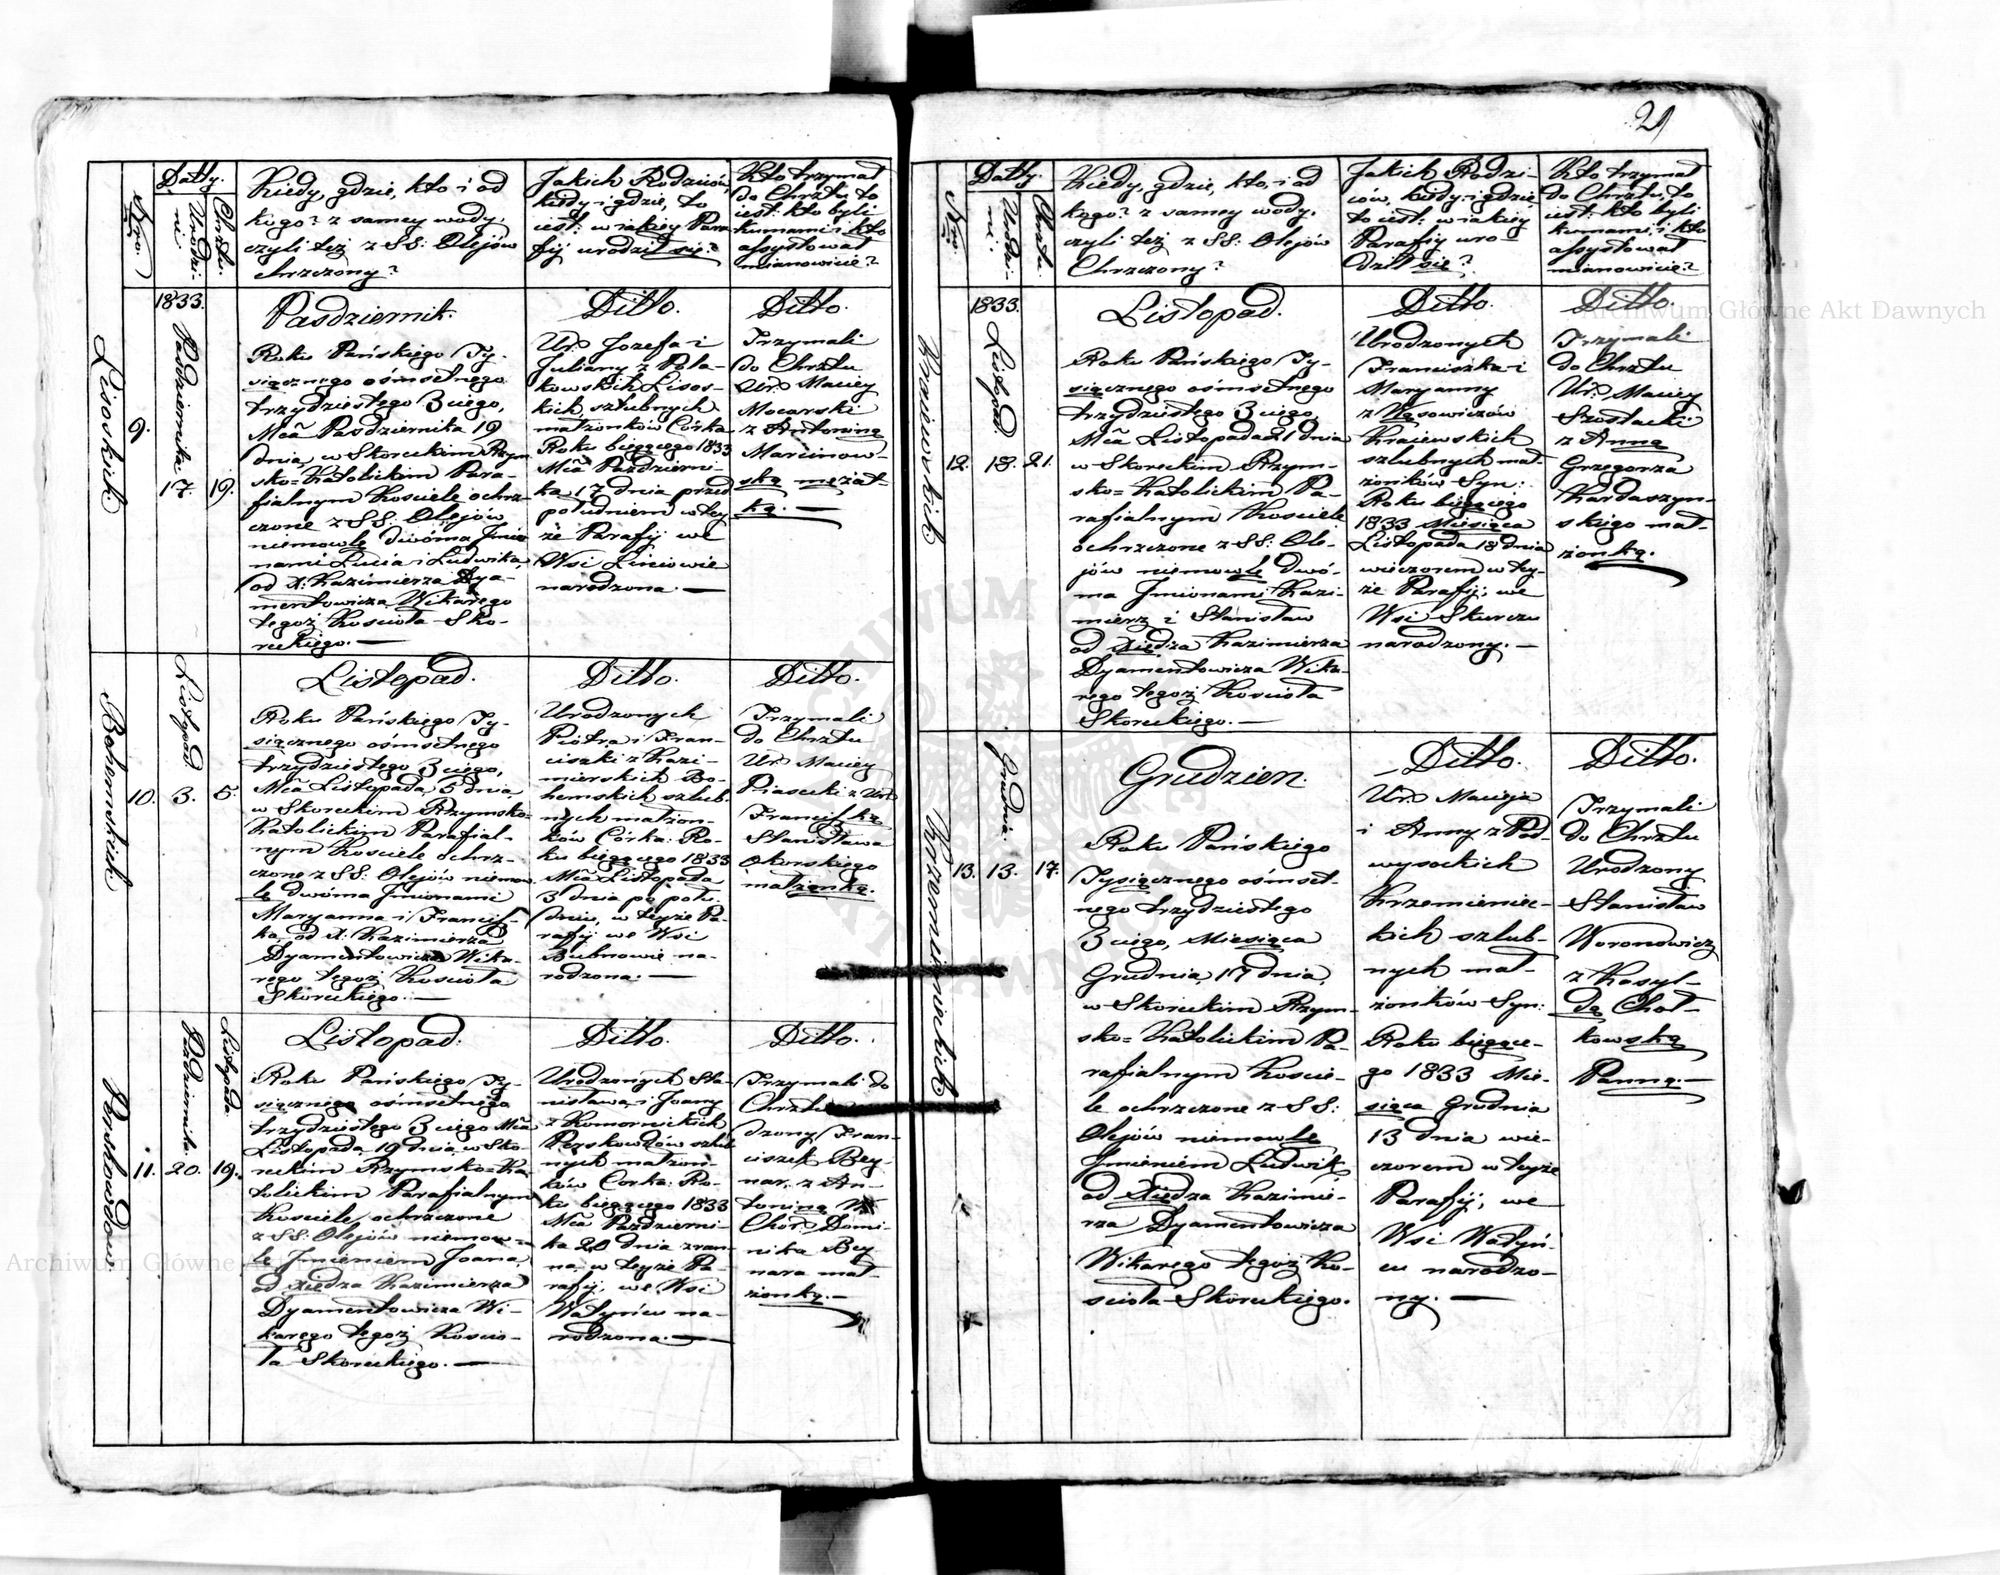 29
Nro.
Datty.
Urodzi-
ni.
Chrztu.
Kiedy, gdzie, kto i od
kogo? z samey wody,
czyli też z SS: Olejów
chrzczony?
Jakich Rodziców,
kiedy i gdzie, to
iest: w iakiey Para-
fij urodził się?
Kto trzymał
do Chrztu, to
iest: kto byli
kumami i kto
assystował
mianowicie?
Lisowskich
9.
1833.
Pazdziernika
17.
19.
Pasdziernik.
Roku Pańskiego Ty-
siącznego ośmsetnego
trzydziestego 3ciego,
Mcā Pasdziernika 19
dnia, w Skoreckim Rzym-
sko=Katolickim Para-
fialnym Kosciele ochrz-
czone z SS: Olejów
niemowlę dwóma Jmio-
nami Lucia i Ludwika,
od X: Kazimierza Dya-
mentowicza Wikarego
tegoż Koscioła Sko-
reckiego. —
Ditto.
Ur: Jozefa i
Juliany z Pola-
kowskich Lisows-
kich, szlubnych
małzonków Córka
Roku bieżącego 1833
Mcā Pazdzierni-
ka 17 dnia przed
południem w tey-
że Parafij we
Wsi Liniowie
narodzona. —
Ditto.
Trzymali
do Chrztu
Ur: Maciey
Mocarski
z Antoniną
Marcinow-
ską mężat-
ką. —
Bohemskich
10.
Listopad
3.
5.
Listopad.
Roku Pańskiego Ty-
siącznego ośmsetnego
trzydziestego 3ciego,
Mcā Listopada, 5 dnia
w Skoreckim Rzymsko-
Katolickim Parafial-
nym Kosciele ochrz-
czone z SS: Olejów niemow-
lę dwóma Jmionami
Maryanna i Francisz-
ka, od X: Kazimierza
Dyamentowicza Wika-
rego tegoż Kosciola
Skoreckiego. —
Ditto.
Urodzonych
Piotra i Fran-
ciszki z Kazi-
mierskich Bo-
hemskich szlub-
nych małzon-
ków Córka: Ro-
ku bieżącego 1833
Mcā Listopada
3 dnia po połu-
dniu, w teyże Pa-
rafij we Wsi
Bubnowie na-
rodzona: —
Ditto.
Trzymali
do Chrztu
Ur: Maciey
Piasecki z Ur:
Franciszką
Stanisława
Okorskiego
małzonką.
Perskowzów
11.
Pazdziernika.
20.
Listopada
19.
Listopad.
Roku Pańskiego Ty-
siącznego ośmsetnego
trzydziestego 3ciego Mcā
Listopada 19 dnia, w Sko-
reckim Rzymsko=Ka-
tolickim Parafialnym
Kosciele, ochrzczone
z SS: Olejów niemow-
lę Jmieniem Joana,
od Xiedza Kazimierza
Dyamentowicza Wi-
karego tegoż Koscio-
ła Skoreckiego. —
Ditto.
Urodzonych Sta-
nisława, i Joany
z Komornickich
Perskowzów szlub-
nych małzon-
ków Corka: Ro-
ku bieżącego 1833
Mcā Pazdzierni-
ka 20 dnia zran-
na, w teyże Pa-
rafij, we Wsi
Watyńcu na-
rodzona. —
Ditto.
Trzymali do
Chrztu
dzony Fran-
ciszek Bey-
nar, z An-
toniną
Chor: Domi-
nika Bey
nara mał-
zonką. —
Nro.
Datty.
Urodzi-
ni.
Chrztu.
Kiedy, gdzie, kto, i od
kogo? z samey wody.
czyli też z SS: Olejów
Chrzczony?
Jakich Rodzi-
ców, kiedy i gdzie,
to iest: w iakiey
Parafiy uro-
dził się?
Kto trzymał
do Chrztu, to
iest: kto byli
kumami, i kto
assystował
mianowicie?
Kraiewskich
12.
1833.
Listopad.
18.
21.
Listopad.
Roku Pańskiego Ty-
siącznego ośmsetnego
trzydziestego 3ciego,
Mcā Listopada 21 dnia
w Skoreckim Rzym-
sko=Katolickim Pa-
rafialnym Kosciele
ochrzczone z SS: Ole-
jów niemowlę dwó-
ma Jmionami Kazi-
mierz i Stanisław
od Xiędza Kazimierza
Dyamentowicza Wika-
rego tegoż Kosciola
Skoreckiego. —
Ditto.
Urodzonych
Franciszka i
Maryanny
z Wąsowiczów
Kraiewskich
szlubnych mał-
zonków, Syn:
Roku bieżącego
1833 Miesiąca
Listopada 18 dnia
wieczorem w tey-
że Parafij, we
Wsi Skurczu
narodzony. —
Ditto.
Trzymali
do Chrztu
Ur: Maciey
Szostacki
z Anną
Grzegorza
Kardaszyn-
skiego mał-
zonką.
Krzemienieckich
13.
Grudnia.
13.
17.
Grudzien.
Roku Pańskiego
Tysiącznego ośmset-
nego trzydziestego
3ciego, Miesiąca
Grudnia, 17 dnia,
w Skoreckim Rzym-
sko=Katolickim Pa-
rafialnym Koscie-
le ochrzczone z SS:
Olejów niemowlę
Jmieniem Ludwik,
od Xiędza Kazimie-
rza Dyamentowicza
Wikarego tegoż Ko-
sciola Skoreckiego.
Ditto.
Ur: Macieja
i Anny z Pod-
wysockich
Krzemieniec-
kich szlub-
nych mał-
zonków Syn:
Roku bieżące-
go 1833 Mie-
siąca Grudnia
13 dnia wie-
czorem w teyże
Parafij, we
Wsi Watyń-
cu narodzo-
ny. —
Ditto.
Trzymali
do Chrztu
Urodzony
Stanisław
Woronowicz
z Kasyl-
dą Choł-
kowską
Panną. —
Archiwum Główne Akt Dawnych
Archiwum Główne Akt Dawnych